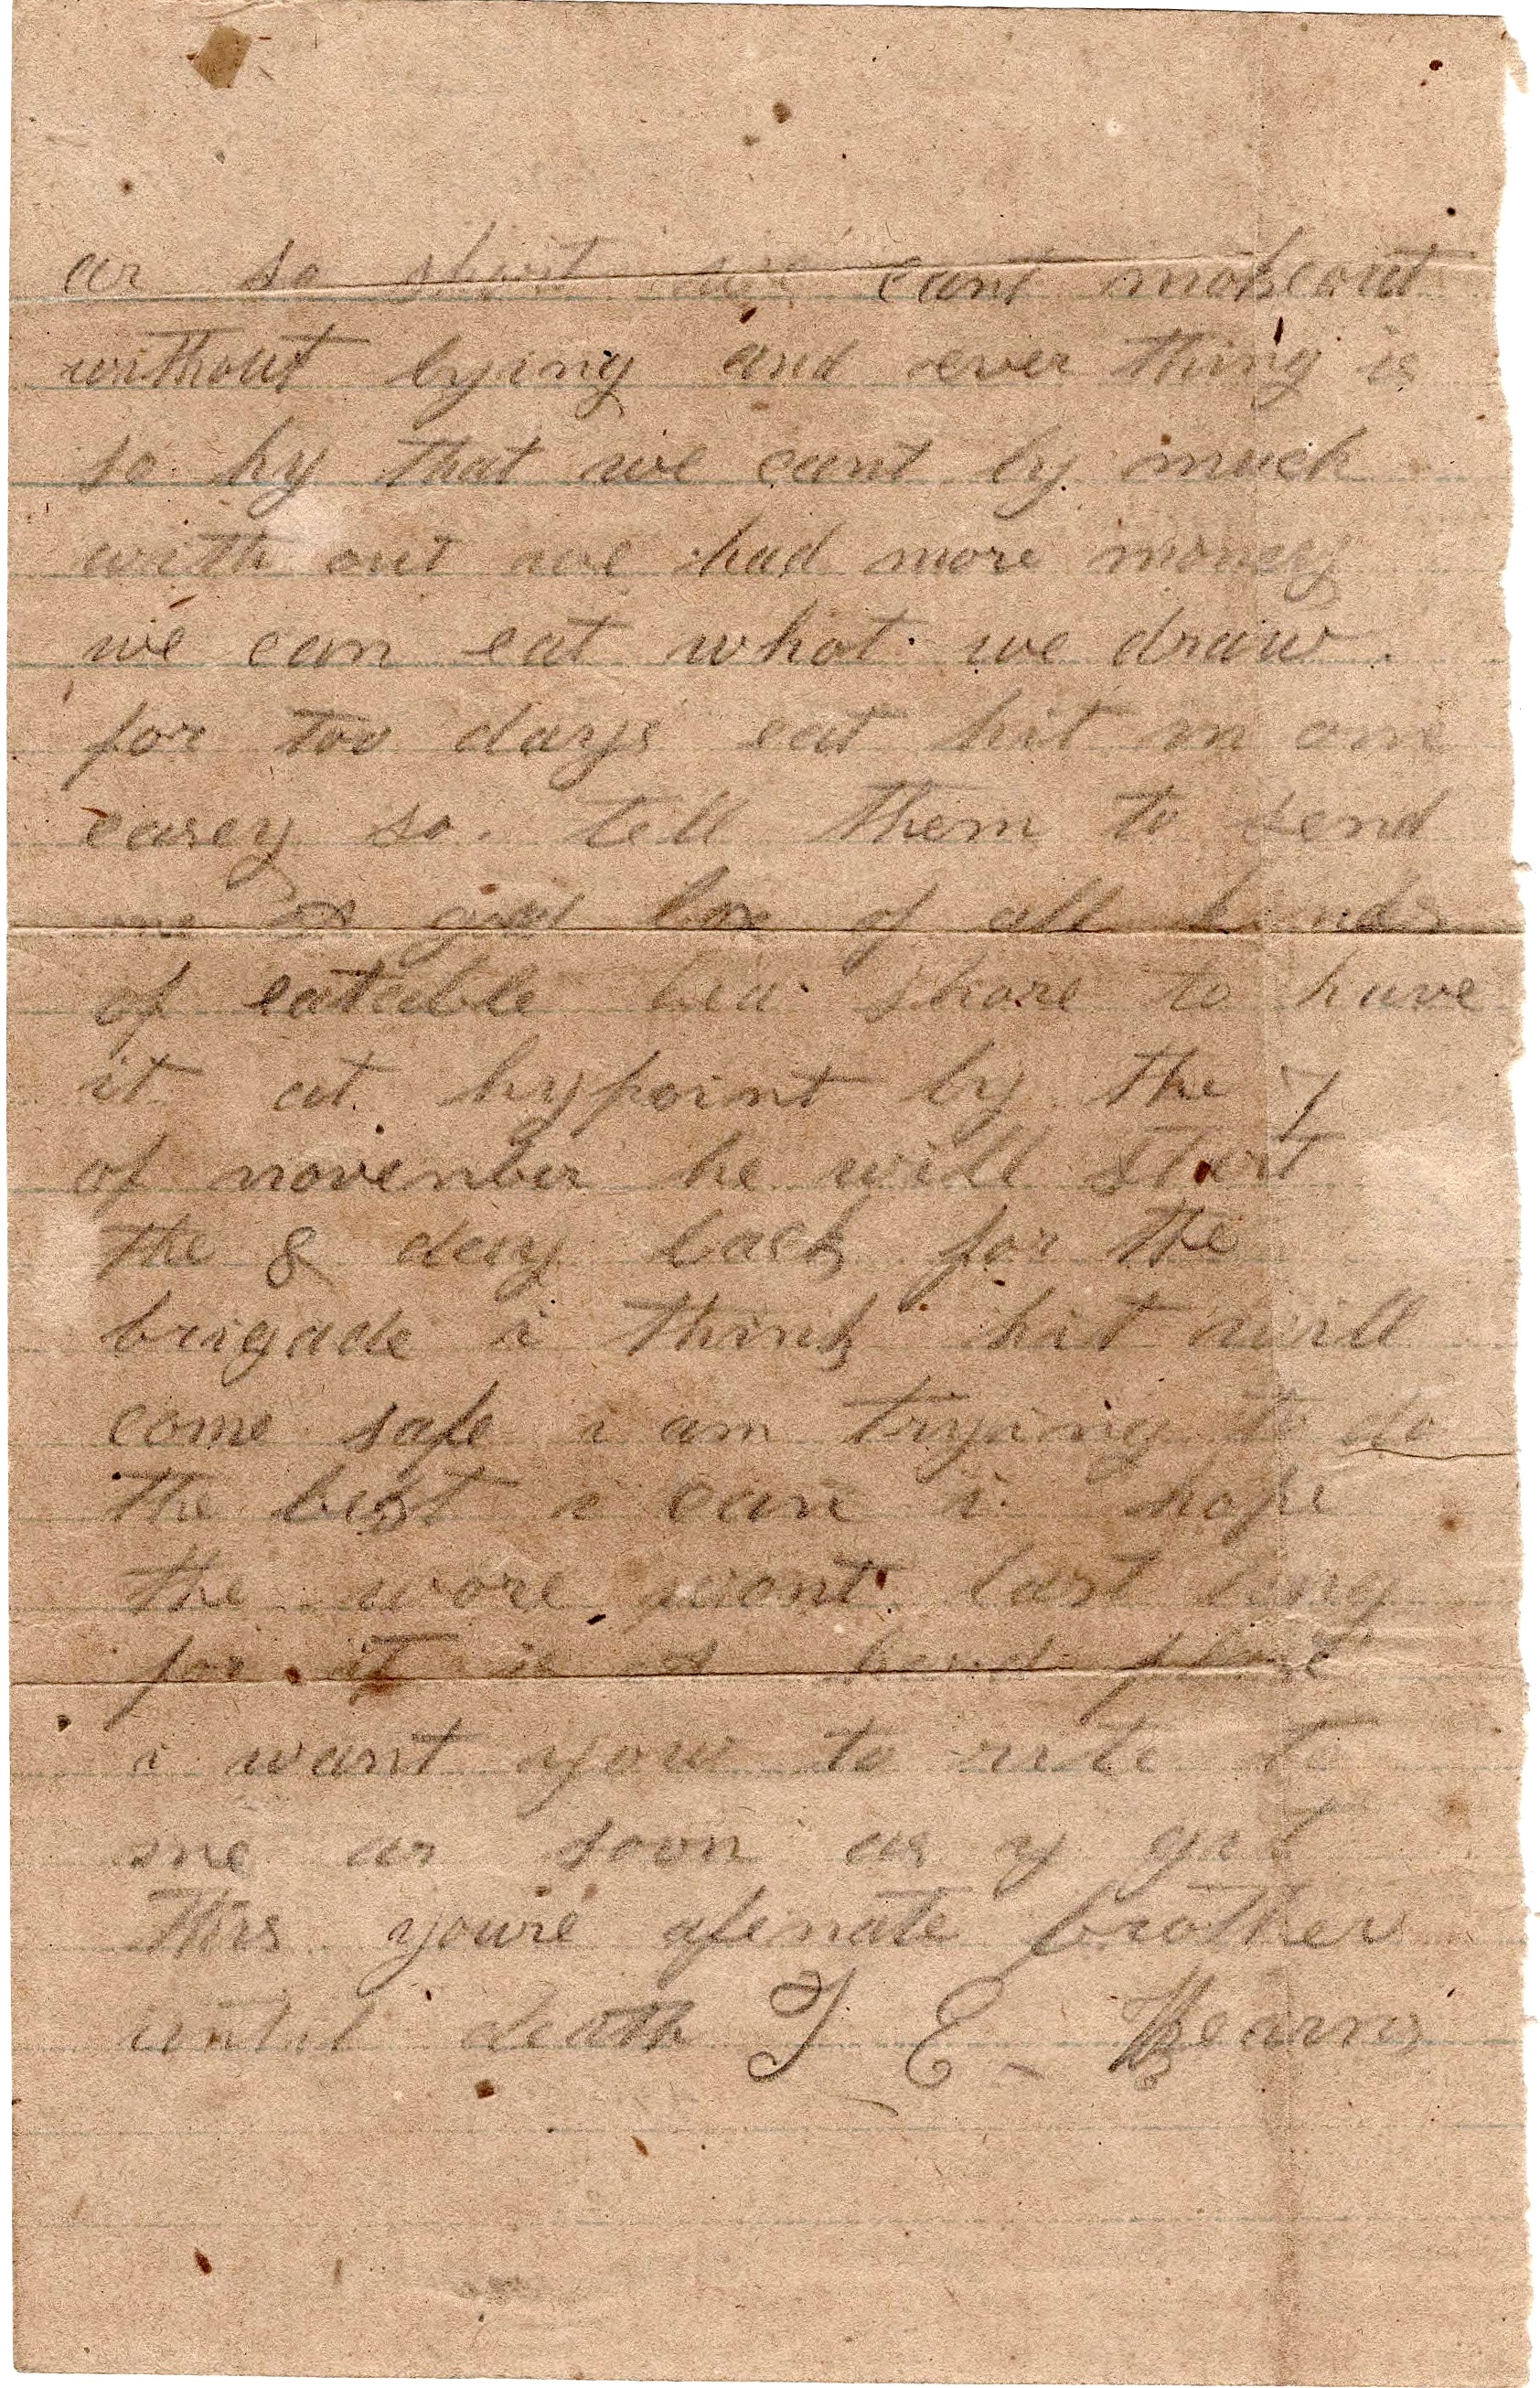 ar so short we cant makeout
without bying and ever thing is
so hy that we cant by much
with out we had more money
we can eat what we draw
for too days eat hit in one
easey so tell them to send
me a good box of all kinds
of eatable bea shore to have
it at hypoint by the 7
of november he will start
the 8 day back for the
brigade i think hit will
come safe i am trying to do
the best i can i hope
the wore wont last long
for it is a hard place
i want yow to rite to
me as soon as y get
this youre afenate brother
until death T E Hearn